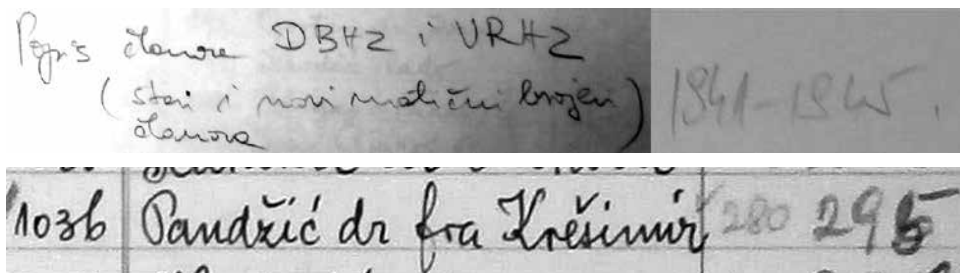 Popis članova DBHZ i VRHZ
(stari i novi matični brojevi
članova)
1941-1945.
1036 Pandžić dr fra Krešimir 280 295